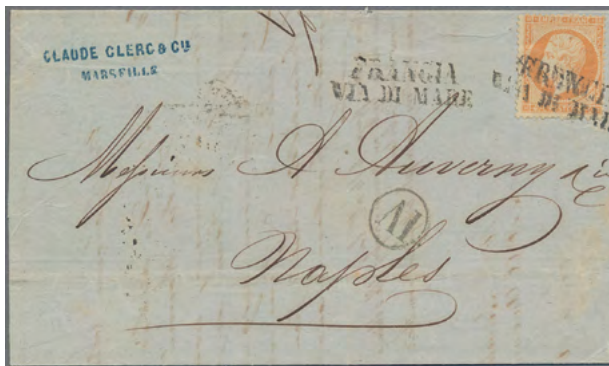 CLAUDE CLERC & Cie
MARSEILLE
FRANCIA
VIA DI MARE
FRANCIA
VIA DI MAR
Messieurs A Auverny & Cie
Naples